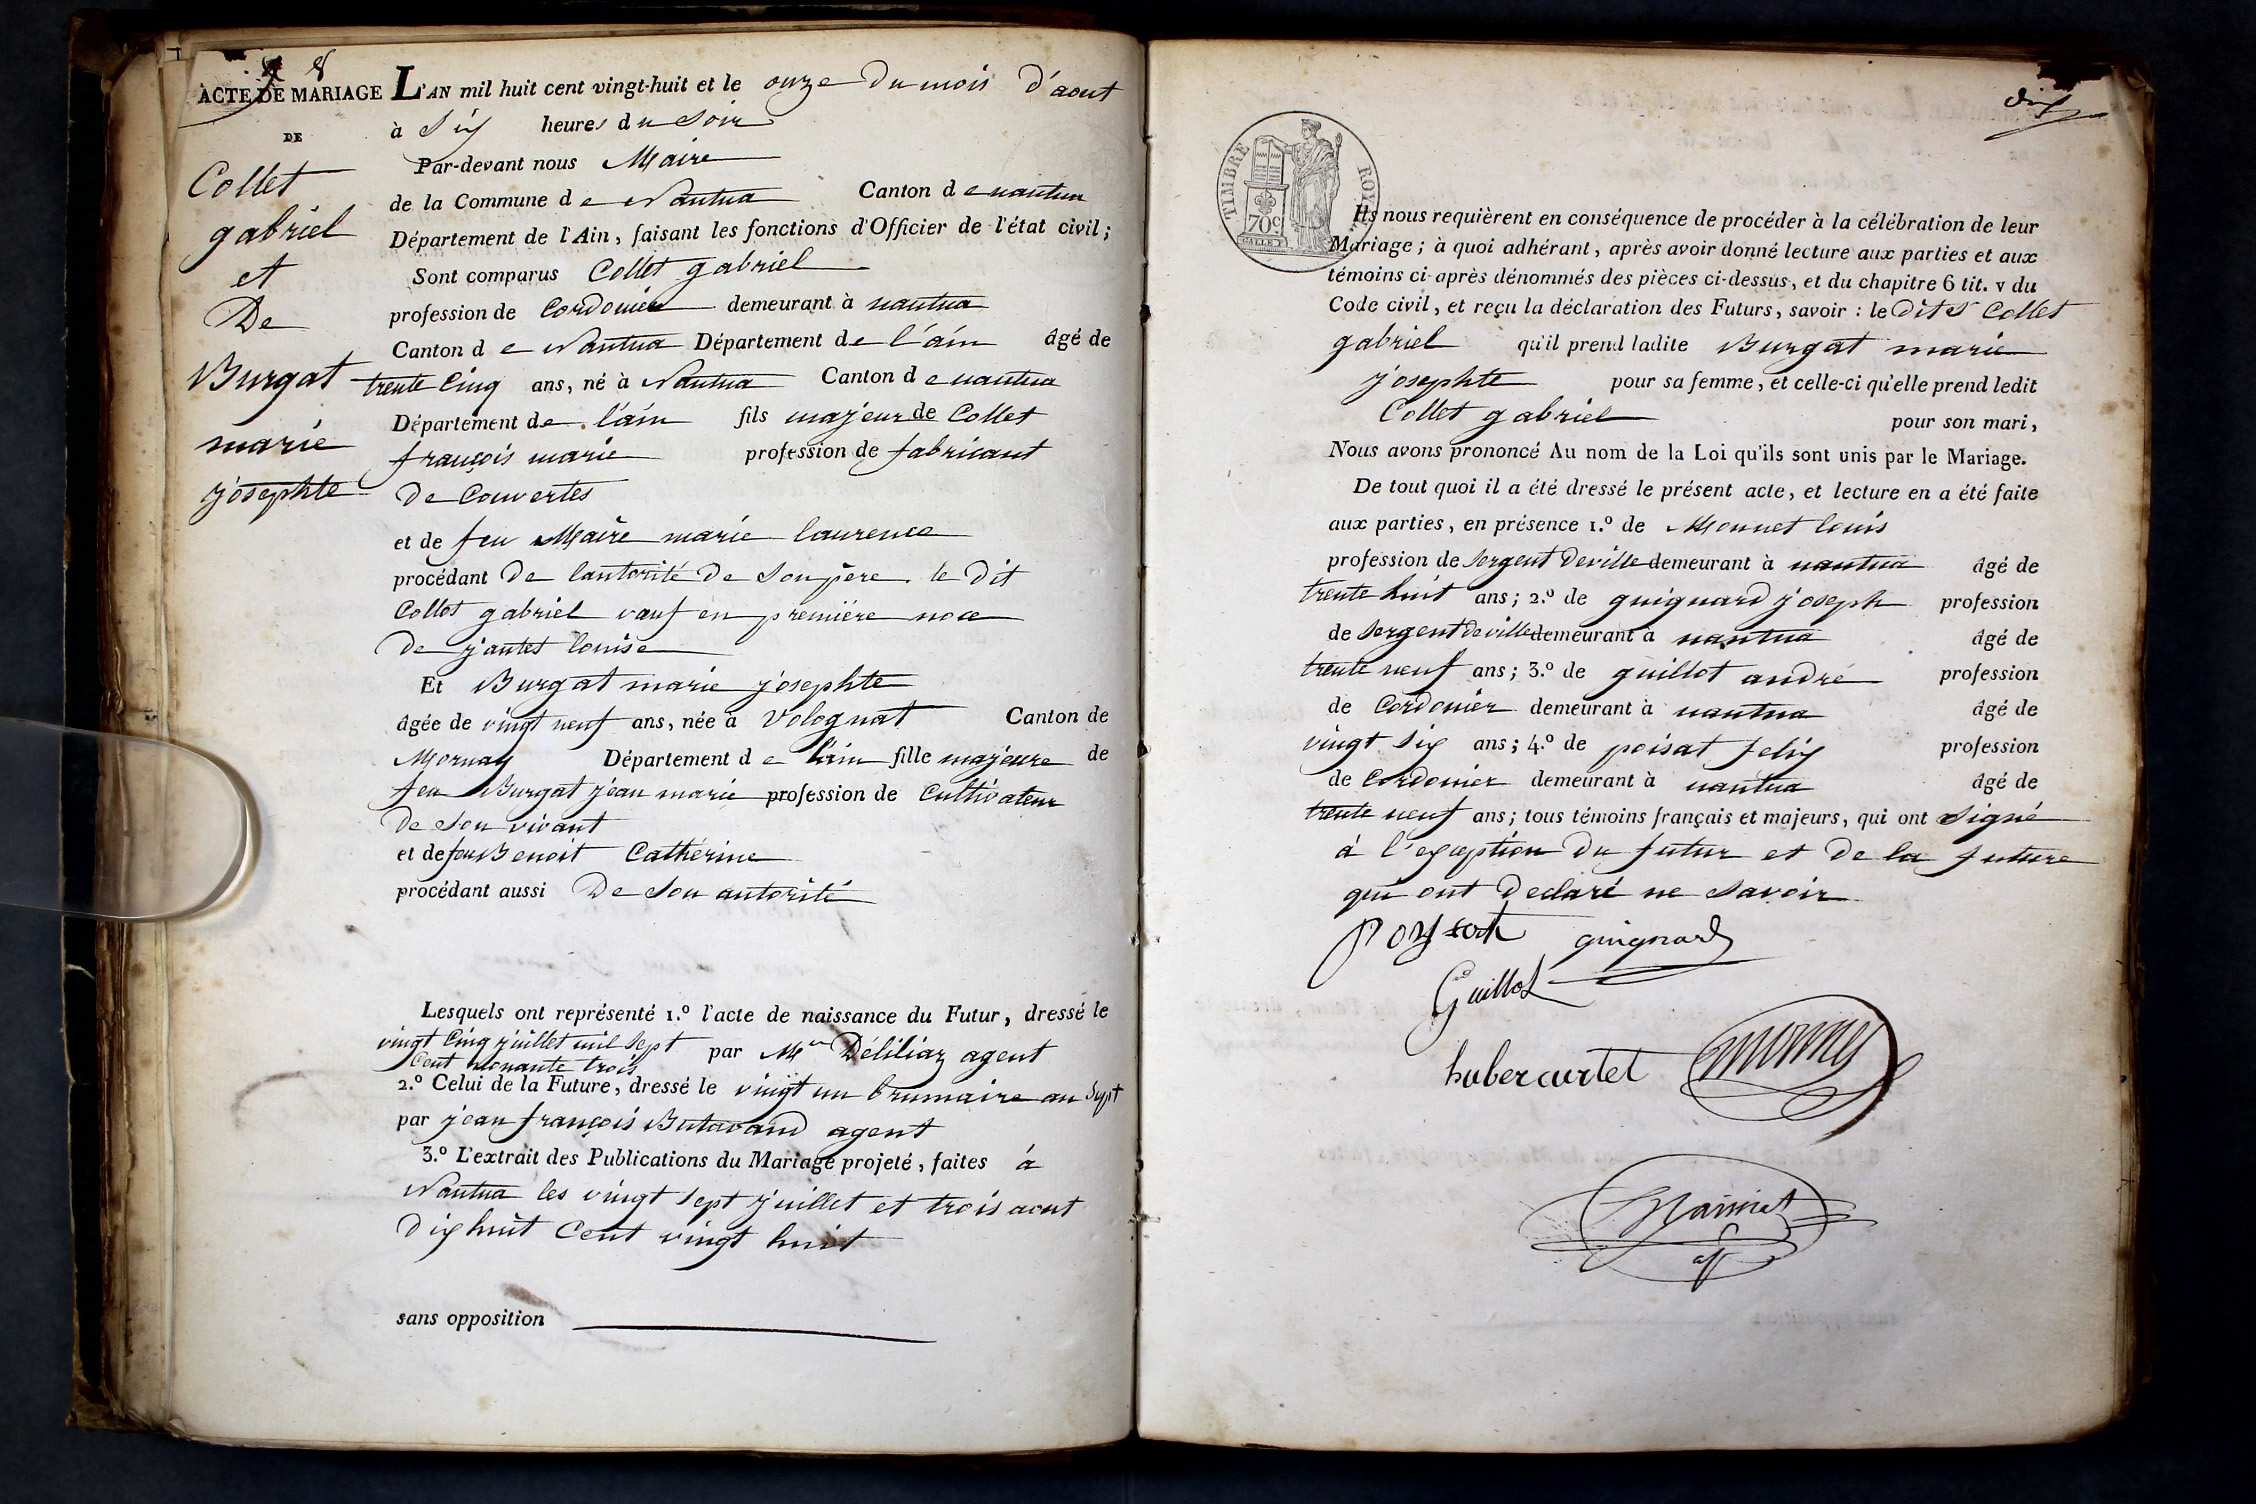 8
ACTE DE MARIAGE
DE
Collet
gabriel
et
De
Burgat
marie
josephte
L'AN mil huit cent vingt-huit et le onze du mois d'aout
à Six heures du Soir
Par-devant nous Maire
de la Commune de Nantua Canton de nantua
Département de l'Ain, faisant les fonctions d'Officier de l'état civil;
Sont comparus Collet gabriel
profession de Cordonier demeurant à nantua
Canton de Nantua Département de l'ain âgé de
trente Cinq ans, né à Nantua Canton de nantua
Département de l'ain fils majeur de Collet
françois marie profession de fabricant
de Couvertes
et de feu Maire marie laurence
procédant De lautorité de Son père. le dit
Collet gabriel vauf en première noce
De jantet louise
Et Burgat marie josephte
âgée de vingt neuf ans, née à Volognat Canton de
Mornay Département de l'ain fille majeure de
feu Burgat jean marie profession de Cultivateur
De Son vivant
et de feu Benoit Catherine
procédant aussi De Son autorité
Lesquels ont représenté 1.º l'acte de naissance du Futur, dressé le
vingt Cinq juillet mil Sept
Cent nonante trois par Déliliaz agent
2.º Celui de la Future, dressé le vingt un brumaire an Sept
par jean françois Butavand agent
3.º L'extrait des Publications du Mariage projeté, faites à
Nantua les vingt Sept juillet et trois aout
Dix huit Cent vingt huit
sans opposition
dix
TIMBRE ROYAL
70c
Ils nous requièrent en conséquence de procéder à la célébration de leur
Mariage; à quoi adhérant, après avoir donné lecture aux parties et aux
témoins ci-après dénommés des pièces ci-dessus, et du chapitre 6 tit. v du
Code civil, et reçu la déclaration des Futurs, savoir : le Dit Sr Collet
gabriel qu'il prend ladite Burgat marie
josephte pour sa femme, et celle-ci qu'elle prend ledit
Collet gabriel pour son mari,
Nous avons prononcé Au nom de la Loi qu'ils sont unis par le Mariage.
De tout quoi il a été dressé le présent acte, et lecture en a été faite
aux parties, en présence 1.º de Monnet louis
profession de Sergent Deville demeurant à nantua âgé de
trente huit ans; 2.º de guignard joseph profession
de Sergent deville demeurant à nantua âgé de
trente neuf ans; 3.º de guillot andré profession
de Cordonier demeurant à nantua âgé de
vingt Six ans; 4.º de poisat felix profession
de Cordonier demeurant à nantua âgé de
trente neuf ans; tous témoins français et majeurs, qui ont Signé
à l'exception Du futur et De la future
qui ont Déclaré ne Savoir
guignard
Guillot
hubercurtet